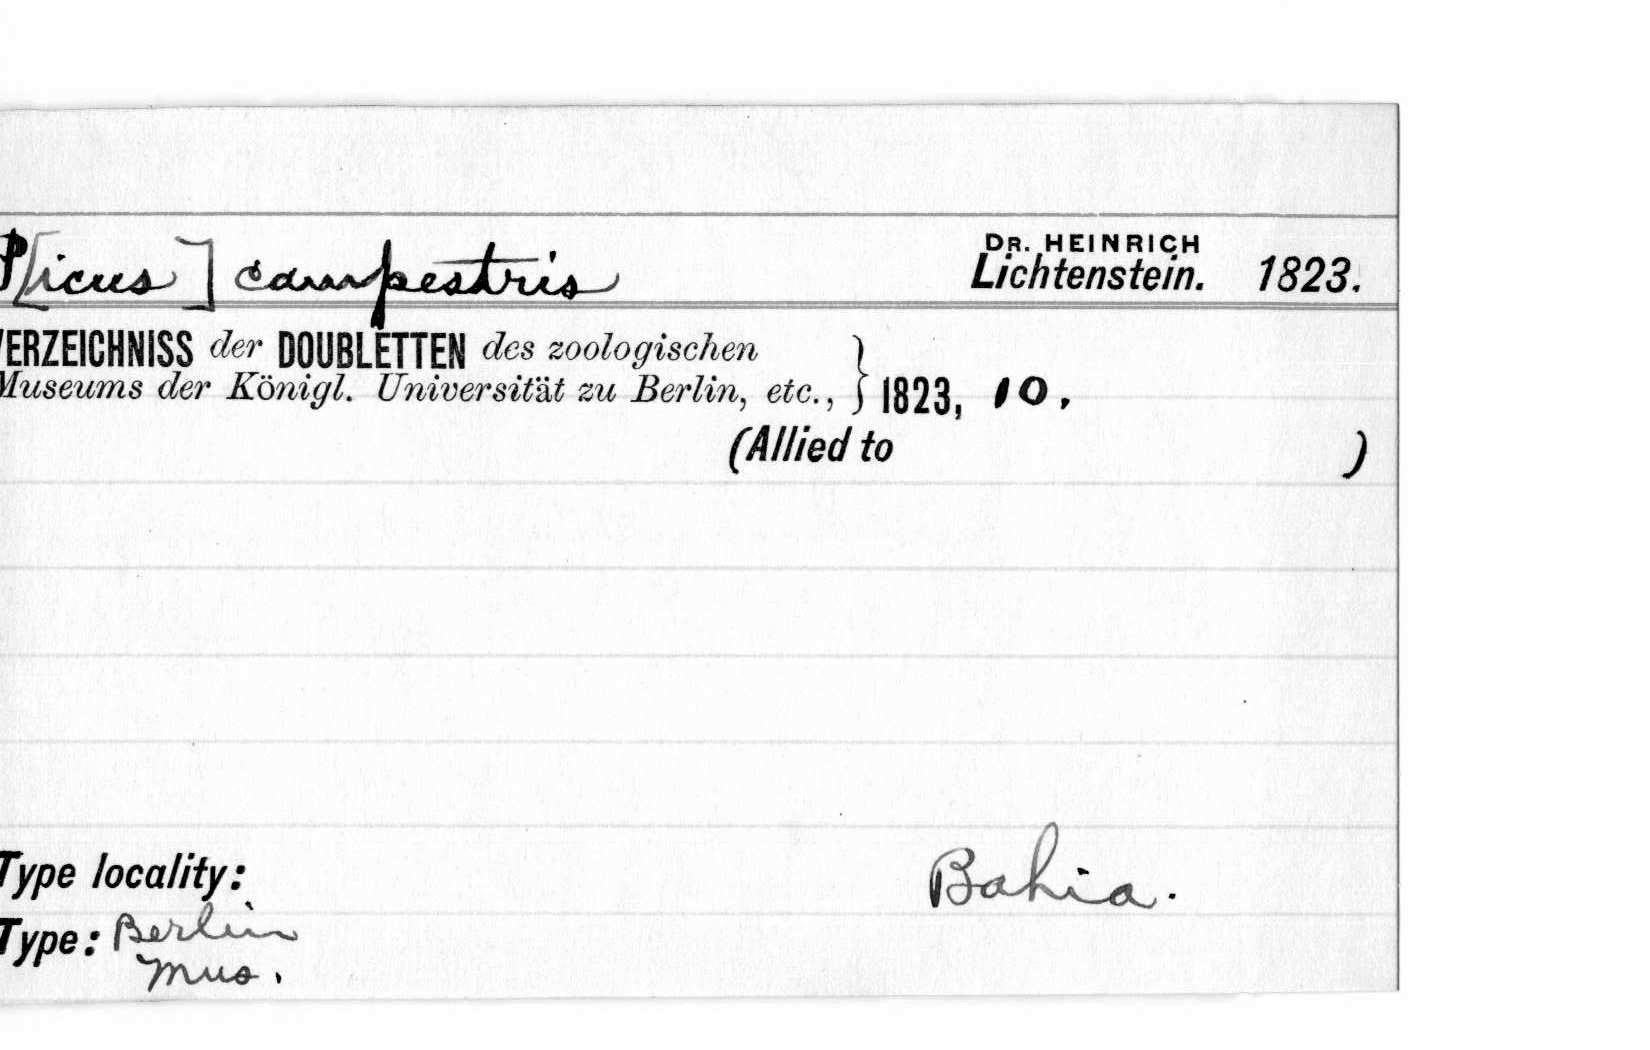 P[icus] campestris
DR. HEINRICH
Lichtenstein. 1823.
VERZEICHNISS der DOUBLETTEN des zoologischen
Museums der Königl. Universität zu Berlin, etc., } 1823, 10.
(Allied to )
Type locality: Bahia.
Type: Berlin
Mus.